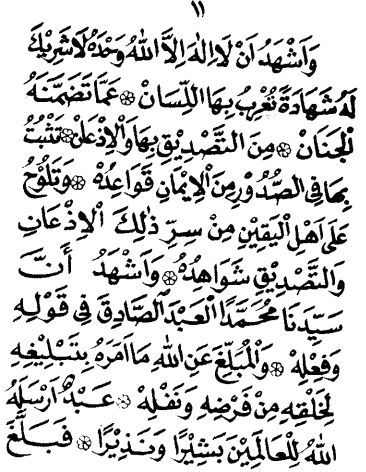 ١١
وَاَشْهَدُ اَنْ لَا اِلٰهَ اِلَّا اللهُ وَحْدَهُ لَا شَرِيْكَ
لَهُ شَهَادَةً تُعْرِبُ بِهَا اللِّسَانْ ۞ عَمَّا تَضَمَّنَهُ
الْجَنَانْ ۞ مِنَ التَّصْدِيْقِ بِهَا وَالْاِذْعَانْ ۞ تَثْبُتُ
بِهَا فِى الصُّدُوْرِ مِنَ الْاِيْمَانِ قَوَاعِدُهْ ۞ وَتَلُوْحُ
عَلَى اَهْلِ الْيَقِيْنِ مِنْ سِرِّ ذٰلِكَ الْاِذْعَانِ
وَالتَّصْدِيْقِ شَوَاهِدُهْ ۞ وَاَشْهَدُ اَنَّ
سَيِّدَنَا مُحَمَّدًا الْعَبْدَ الصَّادِقَ فِى قَوْلِهِ
وَفِعْلِهْ ۞ وَالْمُبَلِّغَ عَنِ اللهِ مَا اَمَرَهُ بِتَبْلِيْغِهِ
لِخَلْقِهِ مِنْ فَرْضِهِ وَنَفْلِهْ ۞ عَبْدٌ اَرْسَلَهُ
اللهُ لِلْعَالَمِيْنَ بَشِيْرًا وَنَذِيْرًا ۞ فَبَلَّغَ